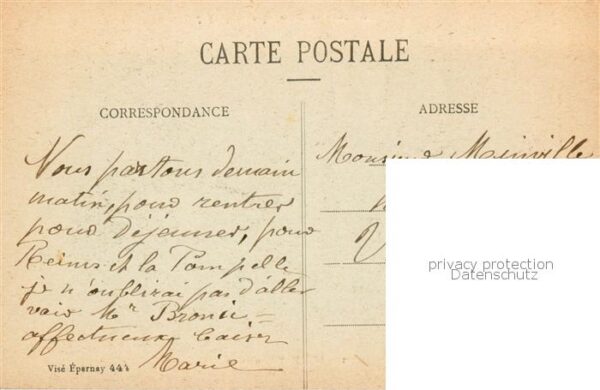 CARTE POSTALE
CORRESPONDANCE
ADRESSE
Nous partons demain
matin, pour rentrer
pour Déjeuner, pour
Reims et la Pompelle
je n'oublirai pas d'aller
voir Mr
affectueux baiser
Marie
Visé Épernay 444
Monsieur Meinville
privacy protection
Datenschutz